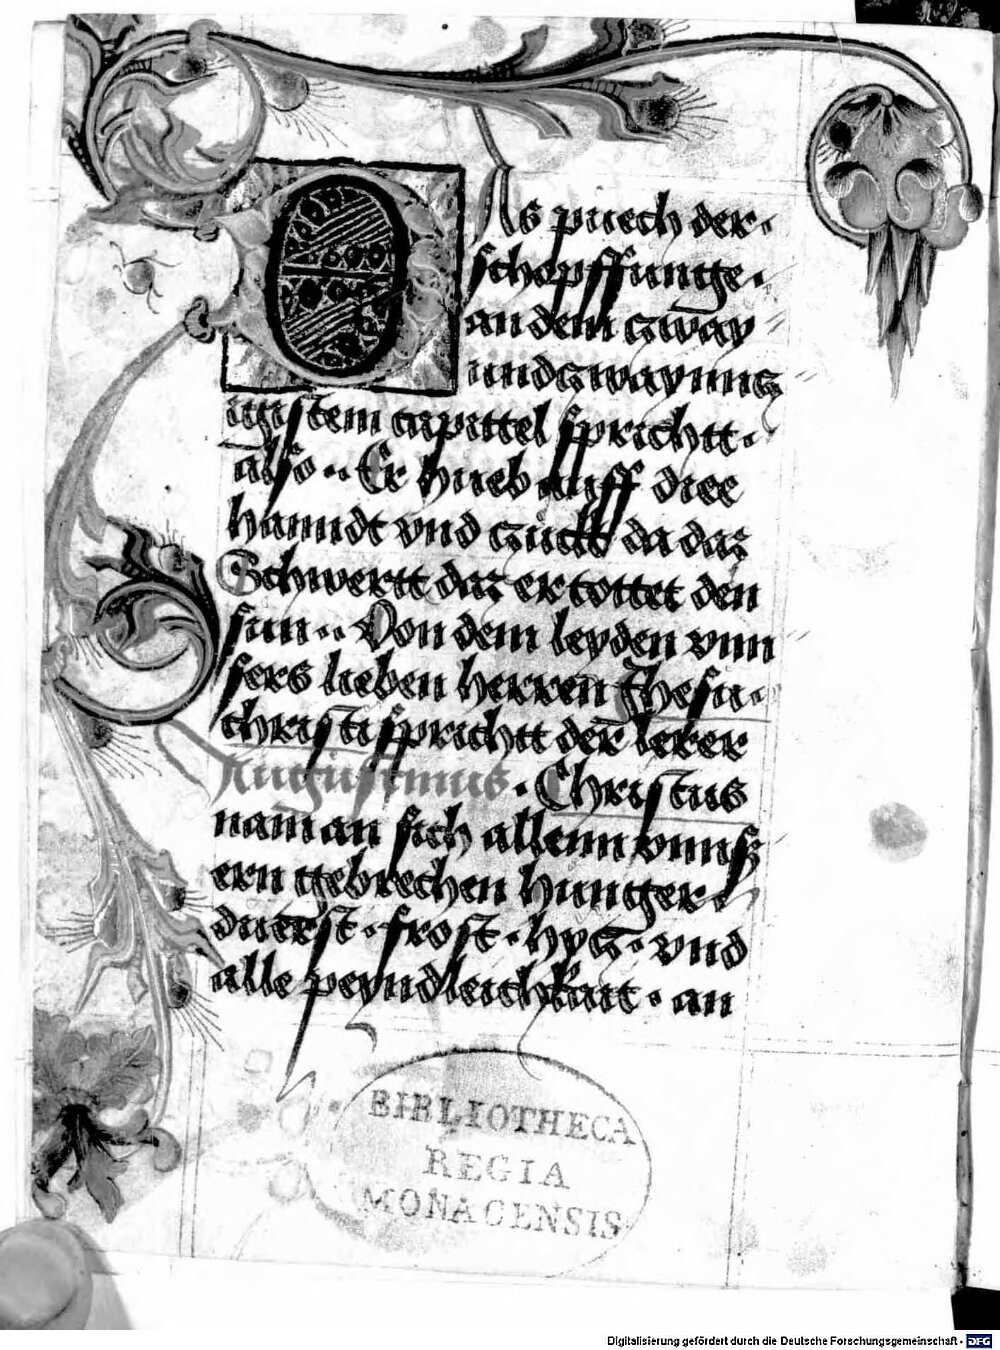 Das puech der.
schopffunge.
an dem zway
und zwayntz
igistem capittel sprichtt.
also.. Er hueb auff diee
hanndt vnd zuckt da daz
Schwertt daz er tottet den
sun.. Von dem leyden vnn
sers lieben herren Jhesu.
christi sprichtt der lerer
Augustinus. Christus
nam an sich allenn vnnß
ern gebrechen hunger.
duerst. frost. hytz. vnd
alle peyndleichkait. an
BIBLIOTHECA
REGIA
MONACENSIS
Digitalisierung gefördert durch die Deutsche Forschungsgemeinschaft - DFG